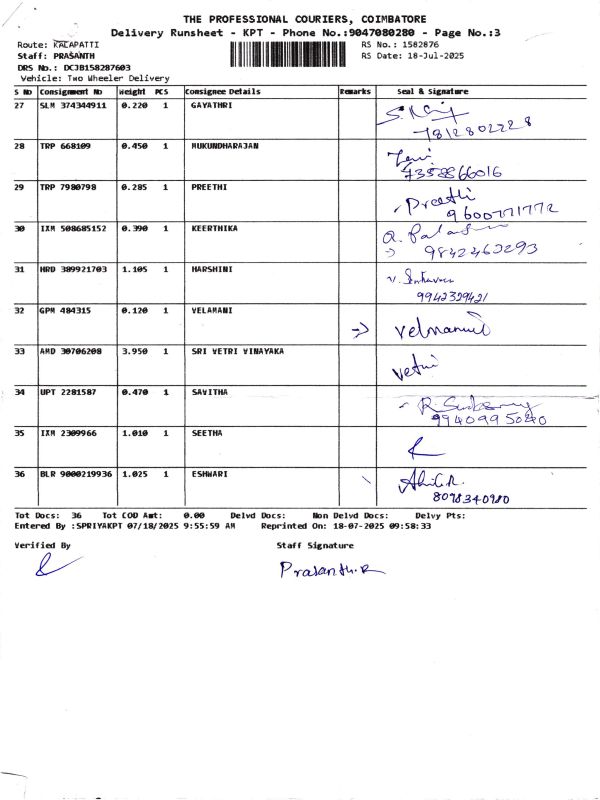 THE PROFESSIONAL COURIERS, COIMBATORE
Delivery Runsheet - KPT - Phone No.:9047080280 - Page No.:3
Route: KALAPATTI
RS No.: 1582876
Staff: PRASANTH
RS Date: 18-Jul-2025
DRS No.: DCJB158287603
Vehicle: Two Wheeler Delivery
S No Consignment No Weight PCS Consignee Details Remarks Seal & Signature
27 SLM 374344911 0.220 1 GAYATHRI
7812802228
28 TRP 668109 0.450 1 MUKUNDHARAJAN
7358866016
29 TRP 7980798 0.285 1 PREETHI Preethi
9600771772
30 IXM 508685152 0.390 1 KEERTHIKA
9842463293
31 HRD 309921703 1.105 1 HARSHINI
9942329421
32 GPM 484315 0.120 1 VELAMANI
33 AMD 30706208 3.950 1 SRI VETRI VINAYAKA vetri
34 UPT 2281587 0.470 1 SAVITHA
9940995040
35 IXM 2309966 1.010 1 SEETHA
36 BLR 9000219936 1.025 1 ESHWARI
8098340980
Tot Docs: 36 Tot COD Amt: 0.00 Delvd Docs: Non Delvd Docs: Delvy Pts:
Entered By :SPRIYAKPT 07/18/2025 9:55:59 AM Reprinted On: 18-07-2025 09:58:33
Verified By Staff Signature
Prasanth.R